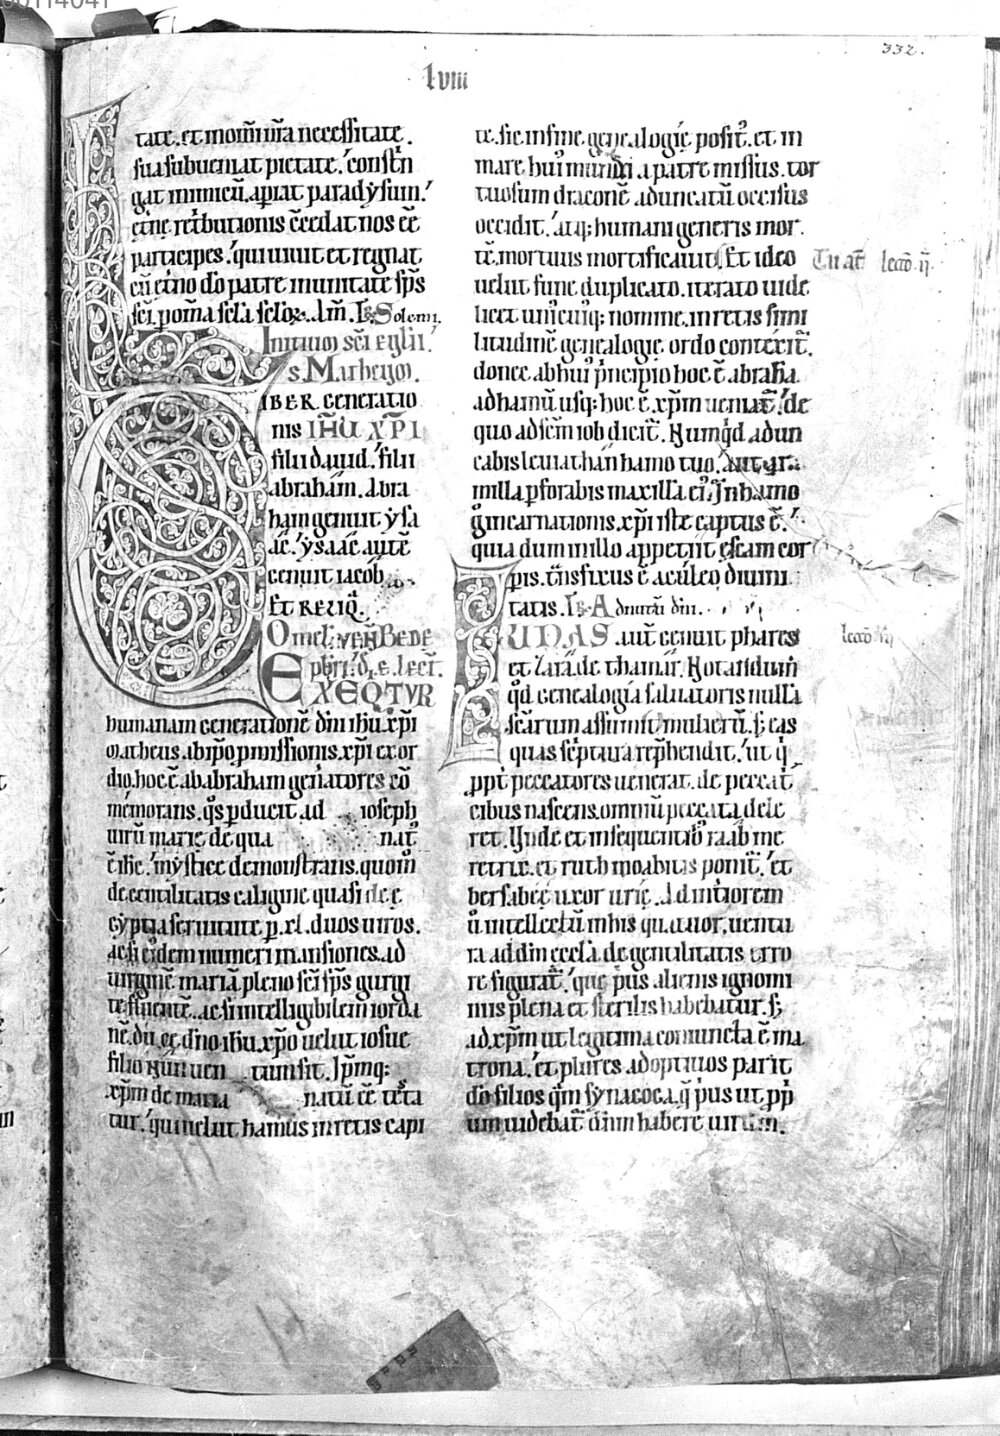 332.
lviii
tate. et mom̄ n̄ra necessitate.
sua subueniat pietate. constrin
gat inimicū. apiat paradẏsum.
et̄ne ret̄butionis c̄cedat nos eē
participes. qui uiuit et regnat
cū et̄no dō patre in unitate sp̄s
sc̄i p om̄a sc̄la sc̄loꝝ. Am̄. Solemn.
Initium sc̄i eglii.
S. Matheum.
IBER generatio
nis IHU XPI
filii dauid. filii
abraham. Abra
ham genuit ẏsa
ac. ẏsaac aute
genuit iacob.
ET RELIQ.
Omel. VEN BEDE
pbri. d̄ e. lect.
EXEQTVR
humanam generationē dn̄i ihū xp̄i
matheus. ab ip̄o pmissionis. xp̄i exor
dio. hoc ē ab abraham gen̄atores eō
memorans. q̄s pducit ad ioseph
uirū marie de qua nat
ē ihc. mẏstice demonstrans. quom̄
de gentilitatis caligine quasi de e
gẏptia seruitute p. xl. duos uiros.
ac si eidem numeri mansiones. ad
uirginē mariā pleno sc̄i sp̄s gurgi
te fluentē. ac si intelligibilem iorda
nē. dū et dn̄o ihū xp̄o uelut iosue
filio nun uen tum sit. Ip̄mq;
xp̄m de maria natū eē testa
tur. qui uelut hamus in retis capi
te. sic in fine genealogie posit. et in
mare hui mundi a patre missus. tor
tuosum draconē aduncatū occisus
occidit. atq; humani generis mor
tē. mortuus mortificauit. Et ideo
uelut fune duplicato. iterato uide
licet uniꝰcuiꝰq; nomine. in retis simi
litudinē genealogie ordo contexit.
donec ab hui p̄ncipio hoc ē abrahā
ad hamū usq; hoc ē xp̄m ueniat. de
quo ad sc̄m iob dicit. Numqd adun
cabis leuiathan hamo tuo. aut
milla pforabis maxillā ei. In hamo
g̊ incarnationis. xp̄i iste captus ē.
quia dum in illo appetiit escam cor
pis. t̄nsfixus ē aculeo diuini
tatis.
IUDAS aut genuit phares
et Zarā de thamar. Notandum
qd genealogia saluatoris nulla
scārum assumit mulierū. s; eas
quas sc̄ptura rep̄hendit. ut q̄
ppt peccatores uenerat. de peccat
cibus nascens. omniū peccata dele
ret. Unde et in sequentib raab me
retrix. et ruth moabitis ponit. et
bersabeē uxor urie. Ad interiorem
u intellectū in his quatuor. uentu
ra ad dn̄m eccl̄a. de gentilitatis erro
re figurat. que pus alienis ignomi
niis plena et sterilis habebatur. s;
ad xp̄m ut legitima coniuncta ē ma
trona. et plures adoptiuos parit
dō filios qm sẏnagoga. q̄ pus ut pp
um uidebat dn̄m habere uirum.
Tu at lectō. ii.
lectō iii